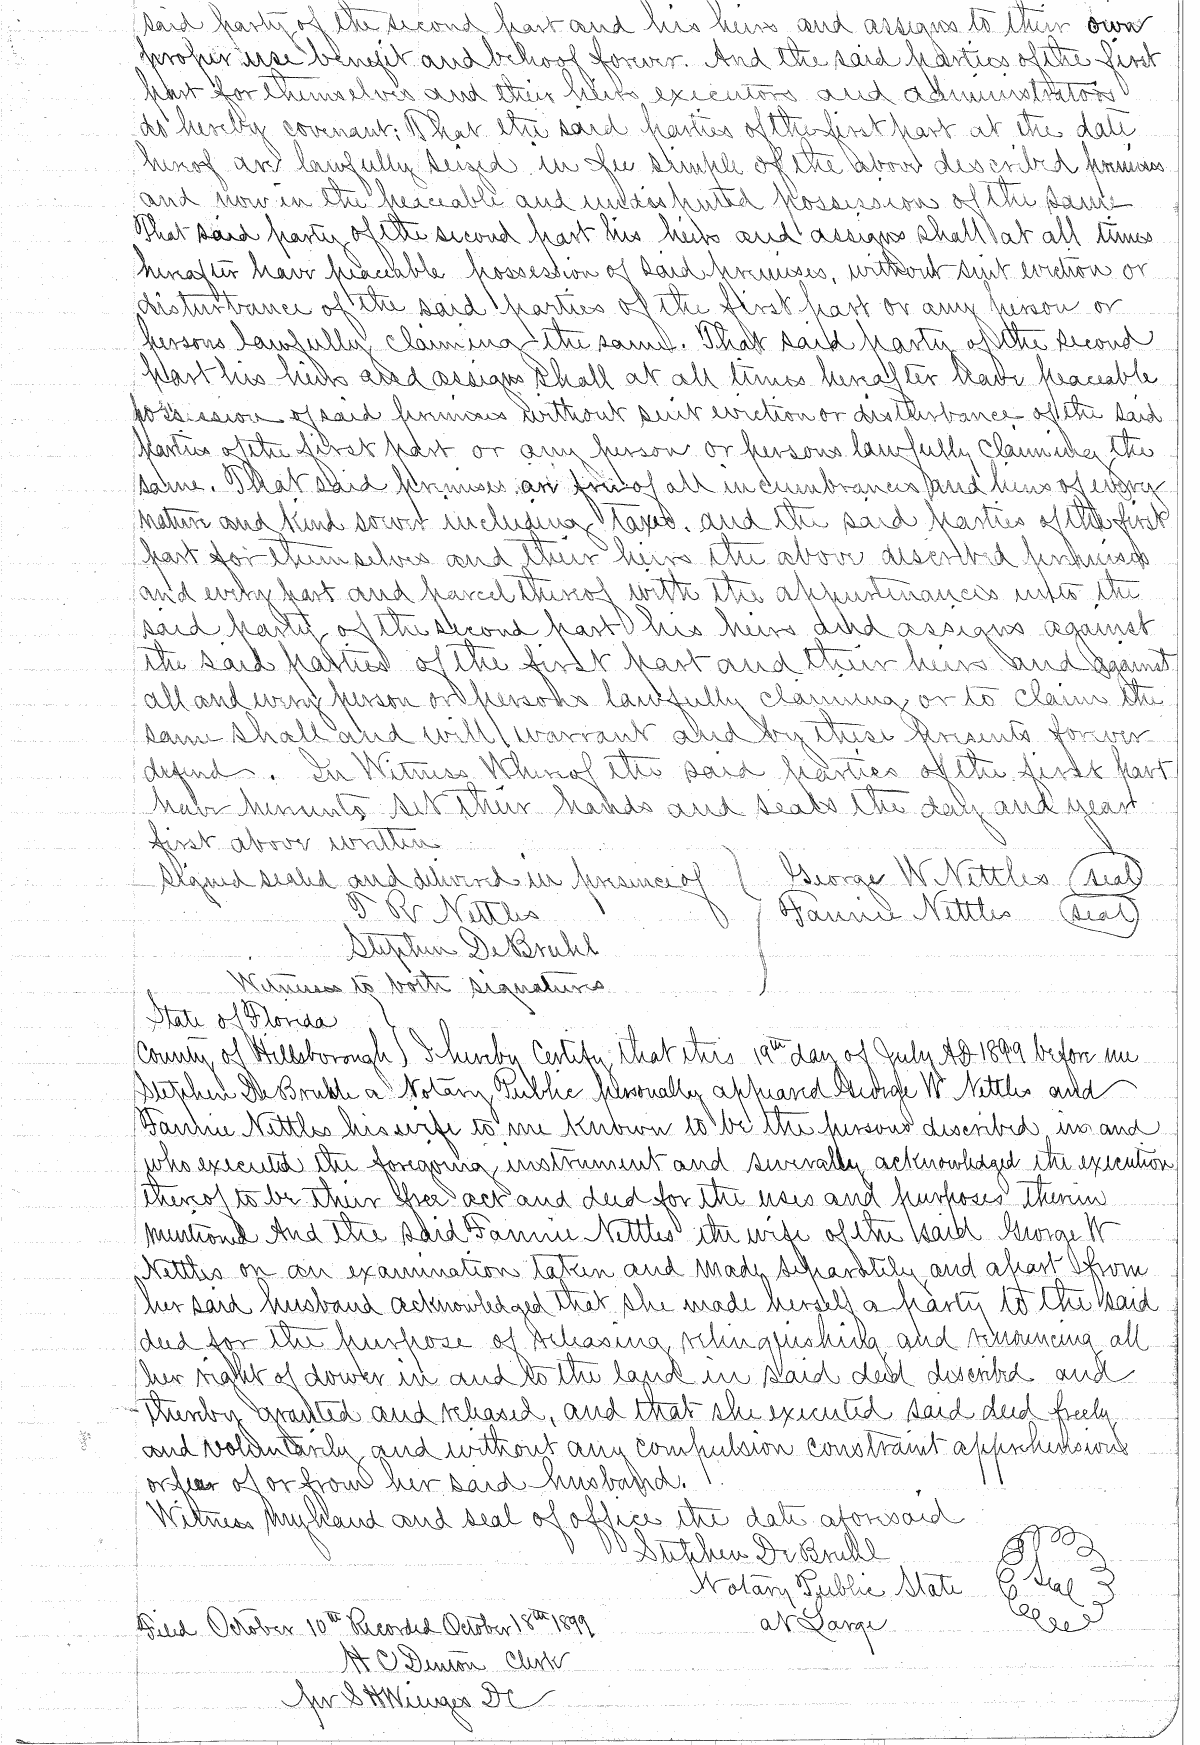 said party of the second part and his heirs and assigns to their own
proper use benefit and behoof forever. And the said parties of the first
part for themselves and their heirs executors and administrators
do hereby covenant; That the said parties of the first part at the date
hereof are lawfully seized in fee simple of the above described premises
and now in the peaceable and undisputed possession of the same
That said party of the second part his heirs and assigns shall at all times
hereafter have peaceable possession of said premises, without suit eviction or
disturbance of the said parties of the first part or any person or
persons lawfully claiming the same. That said party of the second
part his heirs and assigns shall at all times hereafter have peaceable
possession of said premises without suit eviction or disturbance of the said
parties of the first part or any person or persons lawfully claiming the
same. That said premises are free of all incumbrances and liens of every
nature and kind soever including taxes. and the said parties of the first
part for themselves and their heirs the above described premises
and every part and parcel thereof with the appurtenances unto the
said party of the second part his heirs and assigns against
the said parties of the first part and their heirs and against
all and every person or persons lawfully claiming or to claim the
same shall and will warrant and by these presents forever
defend. In Witness Whereof the said parties of the first part
have hereunto set their hands and seals the day and year
first above written
Signed sealed and delivered in presence of } George W Nettles (seal)
T R Nettles Fannie Nettles (seal)
Stephen DeBruhl
Witness to both signatures
State of Florida }
County of Hillsborough } I hereby Certify, that this 19th day of July AD 1899 before me
Stephen DeBruhl a Notary Public personally appeared George W Nettles and
Fannie Nettles his wife to me known to be the persons described in and
who executed the foregoing instrument and severally acknowledged the execution
thereof to be their free act and deed for the uses and purposes therein
mentioned And the said Fannie Nettles the wife of the said George W
Nettles on an examination taken and made separately and apart from
her said husband acknowledged that she made herself a party to the said
deed for the purpose of releasing, relinquishing and renouncing all
her right of dower in and to the land in said deed described and
thereby granted and released, and that she executed said deed freely
and voluntarily and without any compulsion constraint apprehension
or fear of or from her said husband.
Witness my hand and seal of office the date aforesaid
Stephen DeBruhl
Notary Public State Seal
at Large
Filed October 10th Recorded October 18th 1899
H C Denson Clerk
per S H Wienges DC